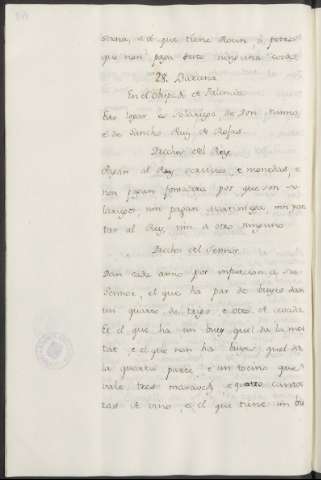 semana, e el que tiene Rocin ó potro
que non paga fasta ninguna cosa
28. Baxana
En el Obispado de Palencia
Este logar es Solariego de Don Nunno,
e de Sancho Ruy de Rojas
Derechos del Rey
Pagan al Rey servicios, e monedas, e
non pagan fonsadera por que son so-
lariegos nin pagan martiniega nin yan-
tar al Rey, nin a otro ninguno
Derechos del Sennor
Dan cada anno por infurcion a su
Sennor, el que ha par de bueyes dan
un quarto de trigo e otro de cevada
Et el que ha un buey quel da la mei-
tat, e el que non ha bueys quel da
la quarta parte, e un tocino que
vale tres maravedis, e quatro cantar-
ras de vino, e el que tiene un bu